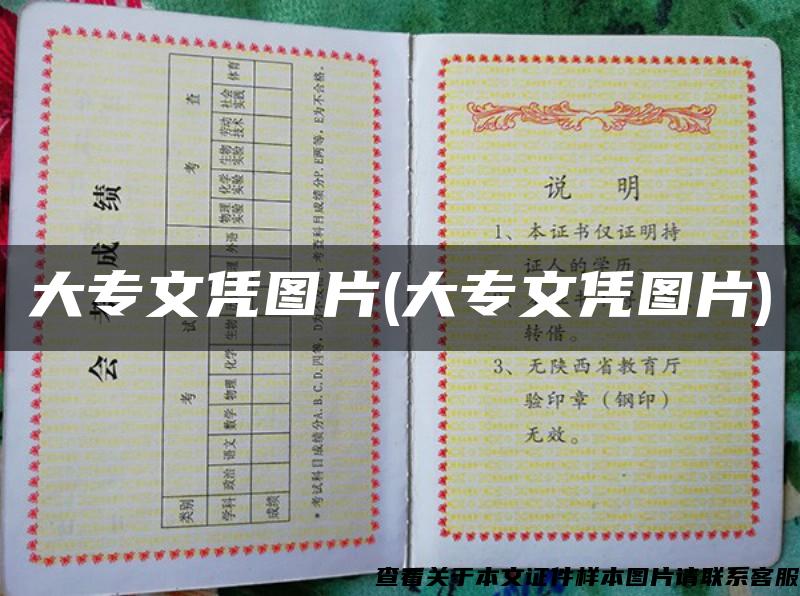 会考成绩
类别 考试 考查
学科 政治 语文 数学 物理 化学 生物 理 外语 物理实验 化学实验 生物实验 劳动技术 社会实践 体育
成绩
* 考试科目成绩分A.B.C.D.四等，D为 考查科目成绩分P、E两等，E为不合格。
说 明
1、本证书仅证明持
证人的学历。
转借。
3、无陕西省教育厅
验印章（钢印）
无效。
大专文凭图片(大专文凭图片)
查看关于本文证件样本图片请联系客服